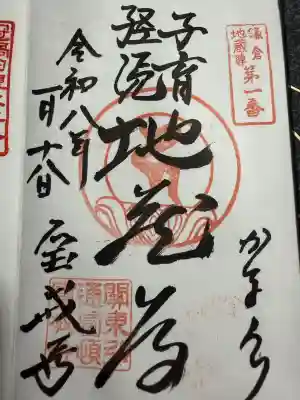 鎌倉
地蔵尊
第一番
かまくら
子育
経読
地蔵尊
令和八年
一月十八日
宝戒寺